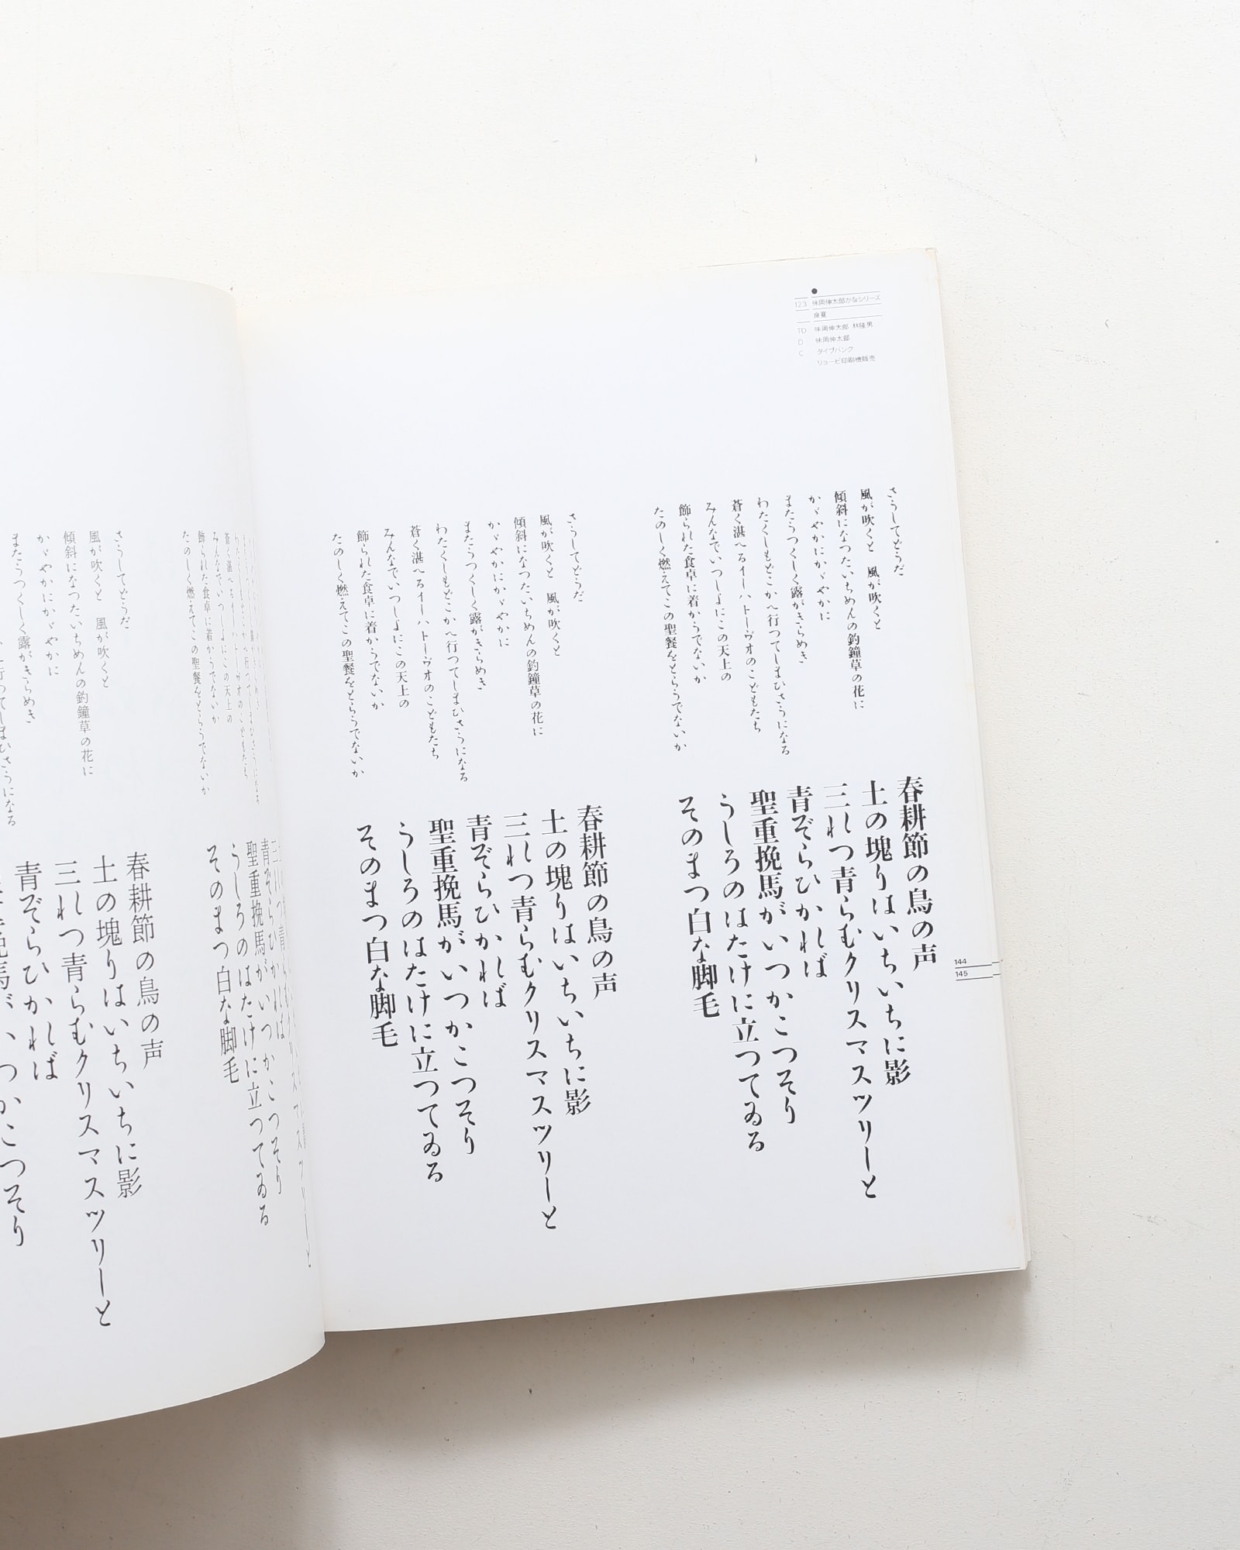 123 味岡伸太郎かなシリーズ
良寛
TD 味岡伸太郎 林隆男
D 味岡伸太郎
C タイプバンク
リョービ印刷機販売
さうしてどうだ
風が吹くと 風が吹くと
傾斜になつたいちめんの釣鐘草の花に
かゞやかにかゞやかに
またうつくしく露がきらめき
わたくしもどこかへ行つてしまひさうになる
蒼く湛へるイーハトーヴォのこどもたち
みんなでいつしよにこの天上の
飾られた食卓に着かうでないか
たのしく燃えてこの聖餐をとらうでないか
春耕節の鳥の声
土の塊りはいちいちに影
三れつ青らむクリスマスツリーと
青ぞらひかれば
聖重挽馬がいつかこつそり
うしろのはたけに立つてゐる
そのまつ白な脚毛
さうしてどうだ
風が吹くと 風が吹くと
傾斜になつたいちめんの釣鐘草の花に
かゞやかにかゞやかに
またうつくしく露がきらめき
わたくしもどこかへ行つてしまひさうになる
蒼く湛へるイーハトーヴォのこどもたち
みんなでいつしよにこの天上の
飾られた食卓に着かうでないか
たのしく燃えてこの聖餐をとらうでないか
春耕節の鳥の声
土の塊りはいちいちに影
三れつ青らむクリスマスツリーと
青ぞらひかれば
聖重挽馬がいつかこつそり
うしろのはたけに立つてゐる
そのまつ白な脚毛
144
145
みんなでいつしよにこの天上の
飾られた食卓に着かうでないか
たのしく燃えてこの聖餐をとらうでないか
聖重挽馬がいつかこつそり
うしろのはたけに立つてゐる
そのまつ白な脚毛
さうしてどうだ
風が吹くと 風が吹くと
傾斜になつたいちめんの釣鐘草の花に
かゞやかにかゞやかに
またうつくしく露がきらめき
行つてしまひさうになる
春耕節の鳥の声
土の塊りはいちいちに影
三れつ青らむクリスマスツリーと
青ぞらひかれば
挽馬がいつかこつそり